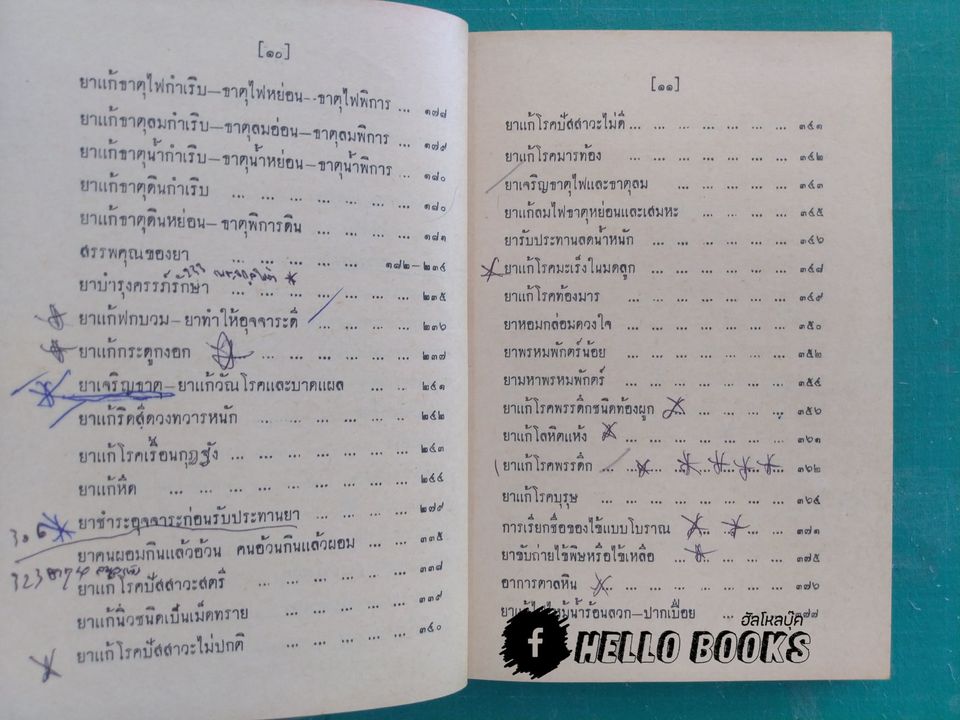 [๑๐]
ยาแก้ธาตุไฟกำเริบ—ธาตุไฟหย่อน--ธาตุไฟพิการ ... ๑๗๘
ยาแก้ธาตุลมกำเริบ—ธาตุลมอ่อน—ธาตุลมพิการ ... ๑๗๙
ยาแก้ธาตุน้ำกำเริบ—ธาตุน้ำหย่อน—ธาตุน้ำพิการ ... ๑๘๐
ยาแก้ธาตุดินกำเริบ ... ... ... ... ... ... ... ๑๘๐
ยาแก้ธาตุดินหย่อน—ธาตุพิการดิน ... ... ... ... ๑๘๑
สรรพคุณของยา ... ... ... ... ... ... ๑๘๒—๒๓๔
๖๖๖
ยาบำรุงครรภ์รักษา ... ... ... ... ... ... ... ๒๓๕
ยาแก้ฟกบวม—ยาทำให้อุจจาระดี ... ... ... ... ๒๓๖
ยาแก้กระดูกงอก ... ... ... ... ... ... ๒๓๗
ยาเจริญธาตุ—ยาแก้วัณโรคและบาดแผล ... ... ๒๔๑
ยาแก้ริดสีดวงทวารหนัก ... ... ... ... ... ... ๒๔๒
ยาแก้โรคเรื้อนกุฏฐัง ... ... ... ... ... ... ... ๒๔๓
ยาแก้หืด ... ... ... ... ... ... ... ... ๒๔๔
306
ยาชำระอุจจาระก่อนรับประทานยา ... ... ... ... ๒๗๙
ยาคนผอมกินแล้วอ้วน คนอ้วนกินแล้วผอม ... ... ๓๓๕
323
ยาแก้โรคปัสสาวะสตรี ... ... ... ... ... ... ๓๓๘
ยาแก้นิ่วชนิดเป็นเม็ดทราย ... ... ... ... ... ๓๓๙
ยาแก้โรคปัสสาวะไม่ปกติ ... ... ... ... ... ๓๔๐
[๑๑]
ยาแก้โรคปัสสาวะไม่ดี ... ... ... ... ... ... ... ๓๔๑
ยาแก้โรคมารท้อง ... ... ... ... ... ... ... ๓๔๒
ยาเจริญธาตุไฟและธาตุลม ... ... ... ... ... ๓๔๓
ยาแก้ลมไฟธาตุหย่อนและเสมหะ ... ... ... ... ๓๔๕
ยารับประทานลดน้ำหนัก ... ... ... ... ... ... ๓๔๖
ยาแก้โรคมะเร็งในมดลูก ... ... ... ... ... ... ๓๔๘
ยาแก้โรคท้องมาร ... ... ... ... ... ... ... ๓๔๙
ยาหอมกล่อมดวงใจ ... ... ... ... ... ... ... ๓๕๐
ยาพรหมพักตร์น้อย ... ... ... ... ... ... ... ๓๕๒
ยามหาพรหมพักตร์ ... ... ... ... ... ... ... ๓๕๔
ยาแก้โรคพรรดึกชนิดท้องผูก ... ... ... ... ๓๕๖
ยาแก้โลหิตแห้ง ... ... ... ... ... ... ... ๓๖๑
ยาแก้โรคพรรดึก ... ... ... ... ... ... ... ๓๖๒
ยาแก้โรคบุรุษ ... ... ... ... ... ... ... ๓๖๕
การเรียกชื่อของไข้แบบโบราณ ... ... ... ... ๓๗๑
ยาขับถ่ายไข้พิษหรือไข้เหลือ ... ... ... ... ๓๗๕
อาการตาลหิน ... ... ... ... ... ... ... ๓๗๖
น้ำร้อนลวก—ปากเปื่อย ... ... ... ๓๗๗
ฮัลโหลบุ๊ค
f HELLO BOOKS